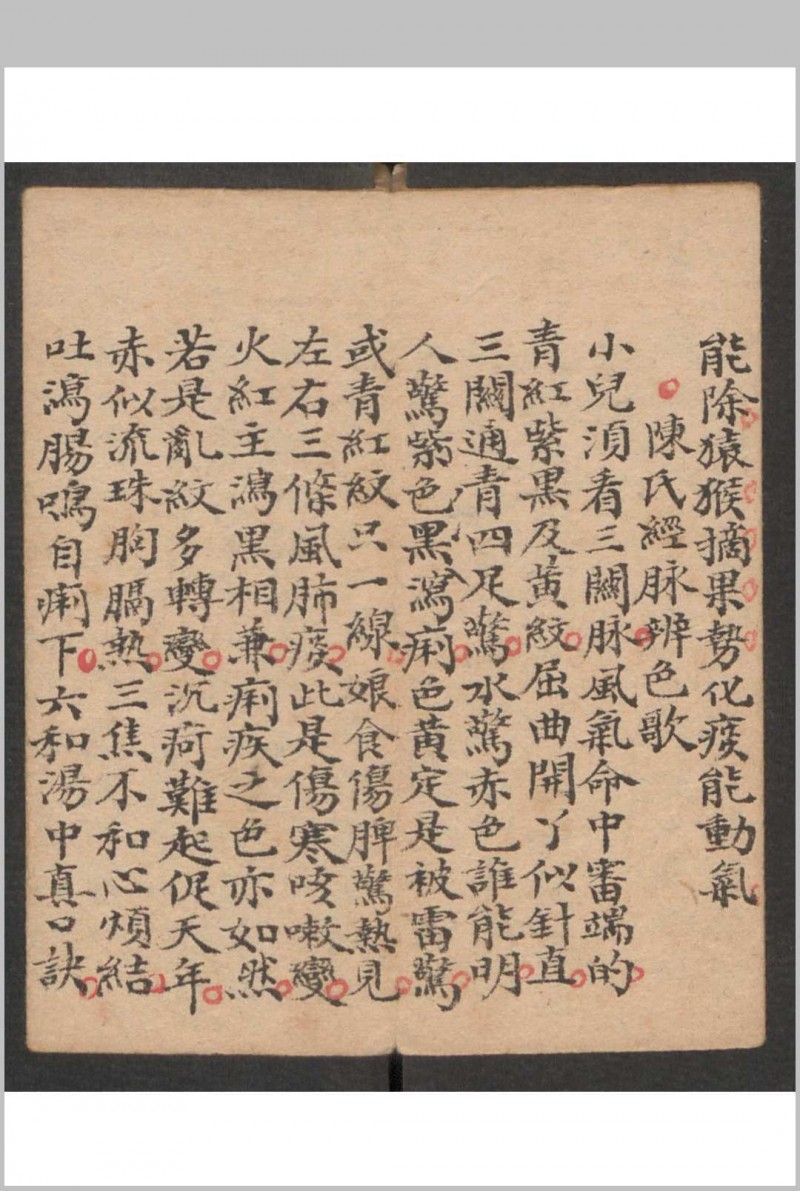 能除猿猴摘果勢化痰能動氣
陳氏經脉辨色歌
小兒須看三關脉風氣命中審端的
青紅紫黑及黃紋屈曲開丫似針直
三關通青四足驚水驚赤色誰能明
人驚紫色黑瀉痢色黃定是被雷驚
或青紅紋只一線娘食傷脾驚熱見
左右三條風肺痰此是傷寒咳嗽變
火紅主瀉黑相兼痢疾之色亦如然
若是亂紋多轉變沉疴難起促天年
赤似流珠胸膈熱三焦不和心煩結
吐瀉腸鳴自痢下六和湯中真口訣